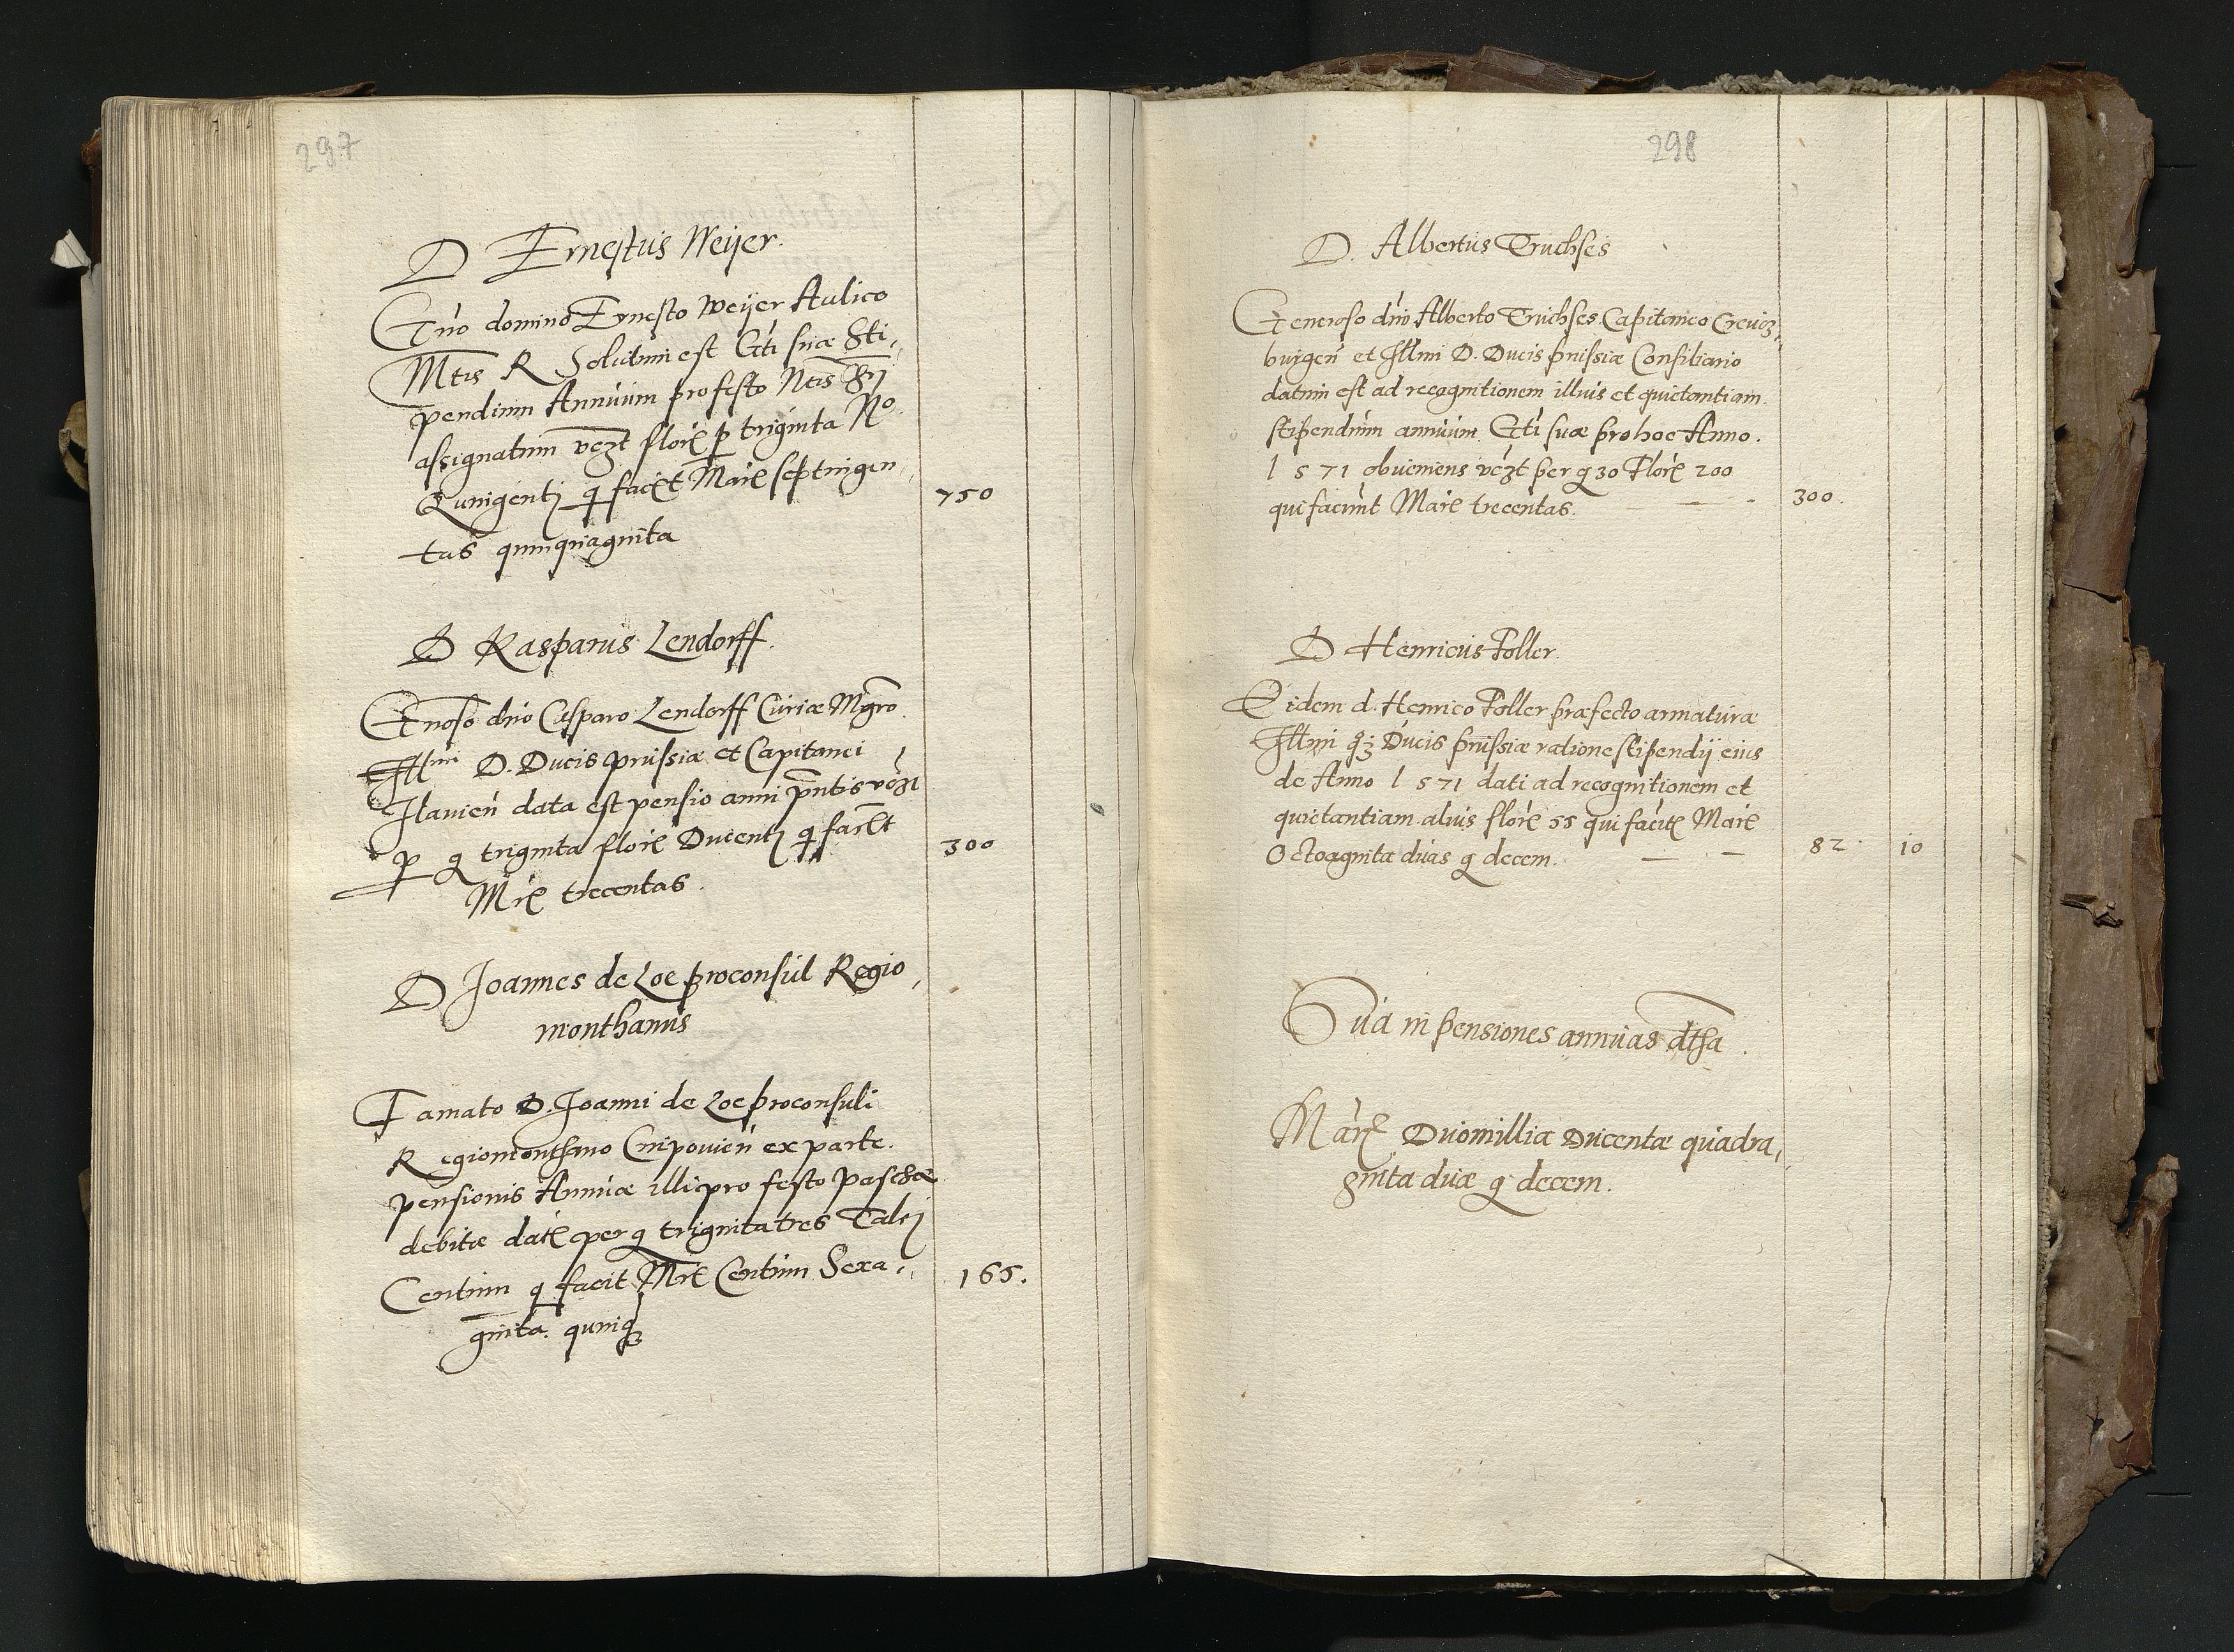 297
D Ernestus Weijer.
Gno domino Ernesto Weijer Aulico
Mtis R Solutum est Gti suae Sti,
pendium Annuum pro festo Ntis
assignatum vezt flore p triginta No
Quingentj q faciet Mare septingen,
tas quinquaginta
750
D Kasparus Lendorff.
Gnoso dno Casparo Lendorff Curiae Mgro
Illmi D. Ducis prussiae et Capitanei
Ilavien data est pensio anni pntis vezt
p g triginta flore Ducentj q faciet
Mre trecentas.
300
D Joannes de Loe proconsul Regio,
monthanus
Famato D. Joanni de Loe proconsuli
Regiomonthano Cnipovien ex parte.
pensionis Annuae illi pro festo paschae
debitae date per g triginta tres Talrj
Centum q facit Mre Centum Sexa,
ginta. quinq
165.
298
D. Albertus Truchses
Generoso dno Alberto Truchses Capitaneo Creucz,
burgen et Illmi D. Ducis prussiae Consiliario
datum est ad recognitionem illius et quictantiam.
stipendium annuum Gti suae pro hoc Anno.
1571 obveniens vezt per g 30 Flore 200
qui faciunt Mare trecentas.
300.
D Henricus Poller.
Eidem d. Henrico Poller praefecto armaturae
Illmi Ducis prussiae ratione stipendij eius
de Anno 1571 dati ad recognitionem et
quictantiam aluis flore 55 qui facite Mare
Octoaginta duas g decem.
82 10
Sua in pensiones annuas dtha.
Mare Duomillia Ducentae quadra,
ginta duae g decem.